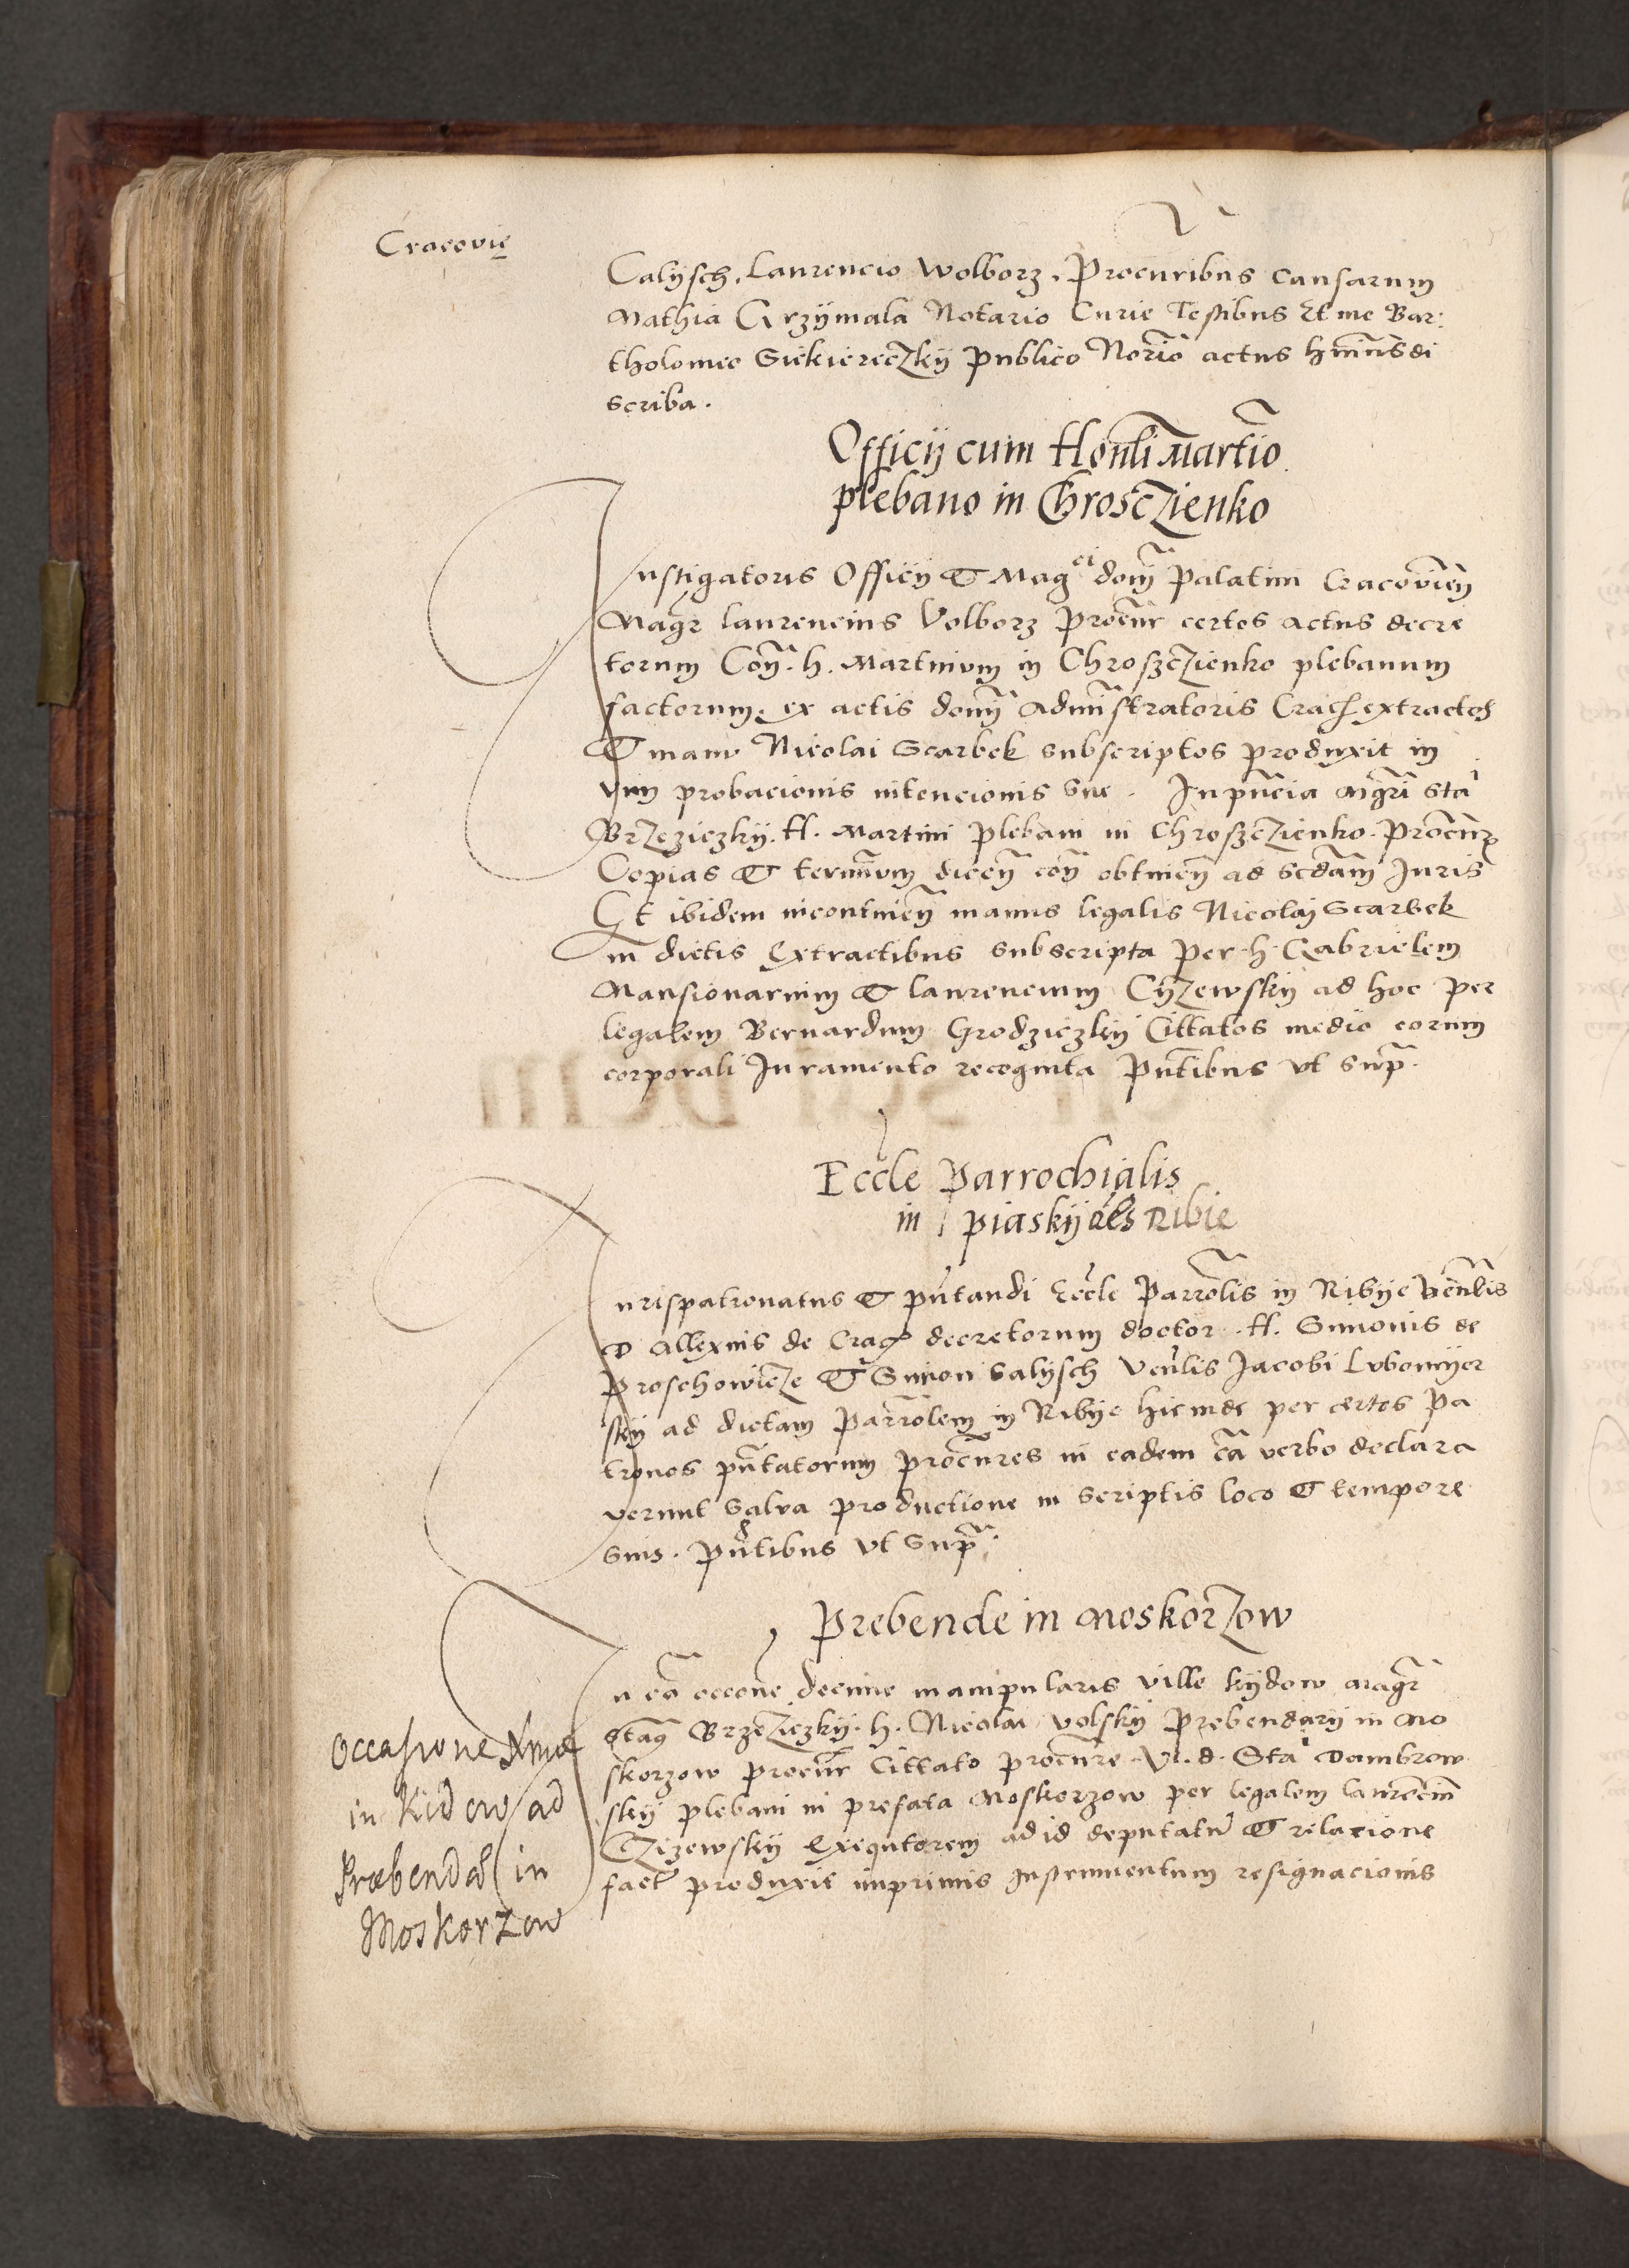 Cracovię
Calijsch. Laurencio Wolborz. Procuribus causarum
Mathia Grzijmala Notario Curie Testibus Et me Bar:
tholomeo Siekiereczkij publico Norio actus hmnusdi
scriba.
Officij cum Honli Martino
plebano in Chrosczienko
Instigatoris Officij et Mag^ci domi Palatini Cracovien
Magr laurencius Volborz Procur certos actus decre
torum Con. h. Martinum in Chroszczienko plebanum
factorum. ex actis domi Administratoris Crac extractos
et manu Nicolai Scarbek subscriptos produxit in
vim probacionis intencionis sue. In pncia Mgri sta
Brzeziczkij. H. Martini plebani in Chroszczienko. Procur
Copias et terminum dicen con obtinen ad scdam Juris
Et ibidem incontinen manus legalis Nicolaj Scarbek
in dictis extractibus subscripta per h Gabrielem
Mansionarium et laurencium Cijzewskij ad hoc per
legalem Bernardum Grodziczkij Cittatos medio eorum
corporali Juramento recognita Pntibus vt supra.
Eccle Parrochialis
in piaskij als Ribie
Jurispatronatus et pntandi Eccle Parrolis in Ribije Venlis
D Allexius de Crac decretorum doctor. H. Simonis de
Proschowicze et Simon Calijsch Venlis Jacobi Lubomijer
skij ad dictam Parrolem in Ribije hicinde per certos Pa
tronos pntatorum procures in eadem ca verbo declara
verunt salva productione in scriptis loco et tempore
suis. Pntibus vt supra.
Prebende in Moskorzow
In ca occone decime manipularis ville Kijdow Magr
Stan Brzeziczkij. h. Nicolai Volskij Prebendarij in Mo
skorzow procur Cittato procure V. d. Sta Dambrow
skij plebani in prefata Moskorzow per legalem laurencium
Czizewskij Exequtorem ad id deputatu et relacione
fact produxit imprimis Instrumentum resignacionis
Occasione Xmæ
in Kidow ad
Præbendã in
Moskorzow